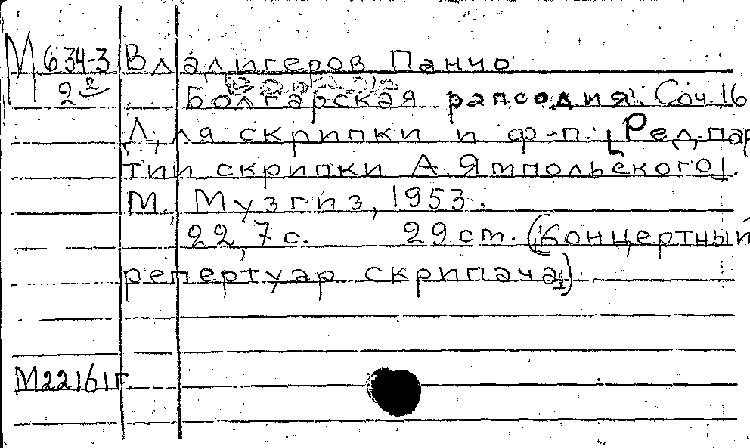 М 634-3 Владигеров Панчо
2² Болгарская рапсодия. Соч 16
Для скрипки и ф-п. [Ред. пар
тии скрипки А. Ямпольского].
М., Музгиз, 1953.
22, 7 с. 29 ст. (Концертный
репертуар скрипача)
М22161г.